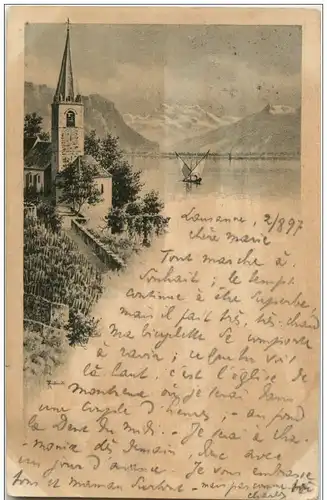 Lausanne, 2/8 97
Chère Marie
Tout marche à
souhait ; le temps
continue à être superbe
mais il fait très, très chaud
Ma bicyclette se comporte
à ravir ; ce que tu vois
là haut, c'est l'église de
Montreux où je serai dans
une couple d'heures, - au fond
la Dent du Midi. - Je serai à Cha-
-monix dès demain, donc avec
un jour d'avance. Je vous embrasse
tous et maman surtout. - mais pas comme
Charles